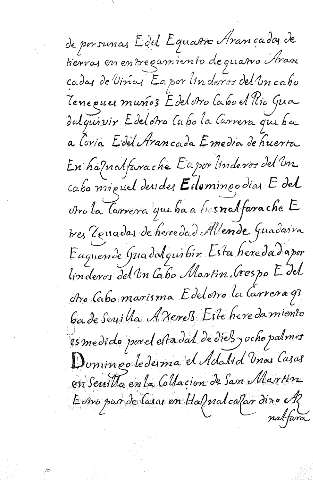 de personas E del E quatro Arancadas de
tierras en entregamiento de quatro Aran
cadas de Viñas E a por linderos del Un cabo
Yenegues muños E del otro Cabo el Rio Gua
dalquivir E del otro Cabo la Carrera que ba
a Coria E del Arancada E media de huerta
En haznalfarache E a por linderos del Un
cabo miguel desdes E domingo dias E del
otro la Carrera que ba a hasnalfarache E
tres Yguadas de heredad Allende Guadaira
E aquende Guadalquibir. Esta heredad a por
linderos del Un Cabo Martin Crespo E del
otro Cabo marisma E del otro la Carrera q
ba de Sevilla A Xerez Este heredamiento
es medido por el estadal de diez y ocho palmos
Domingo ledesma el Adalid Unas Casas
en Sevilla en la Collacion de San Martin
E otro par de Casas en Haznalcazar dino Az
nalfara